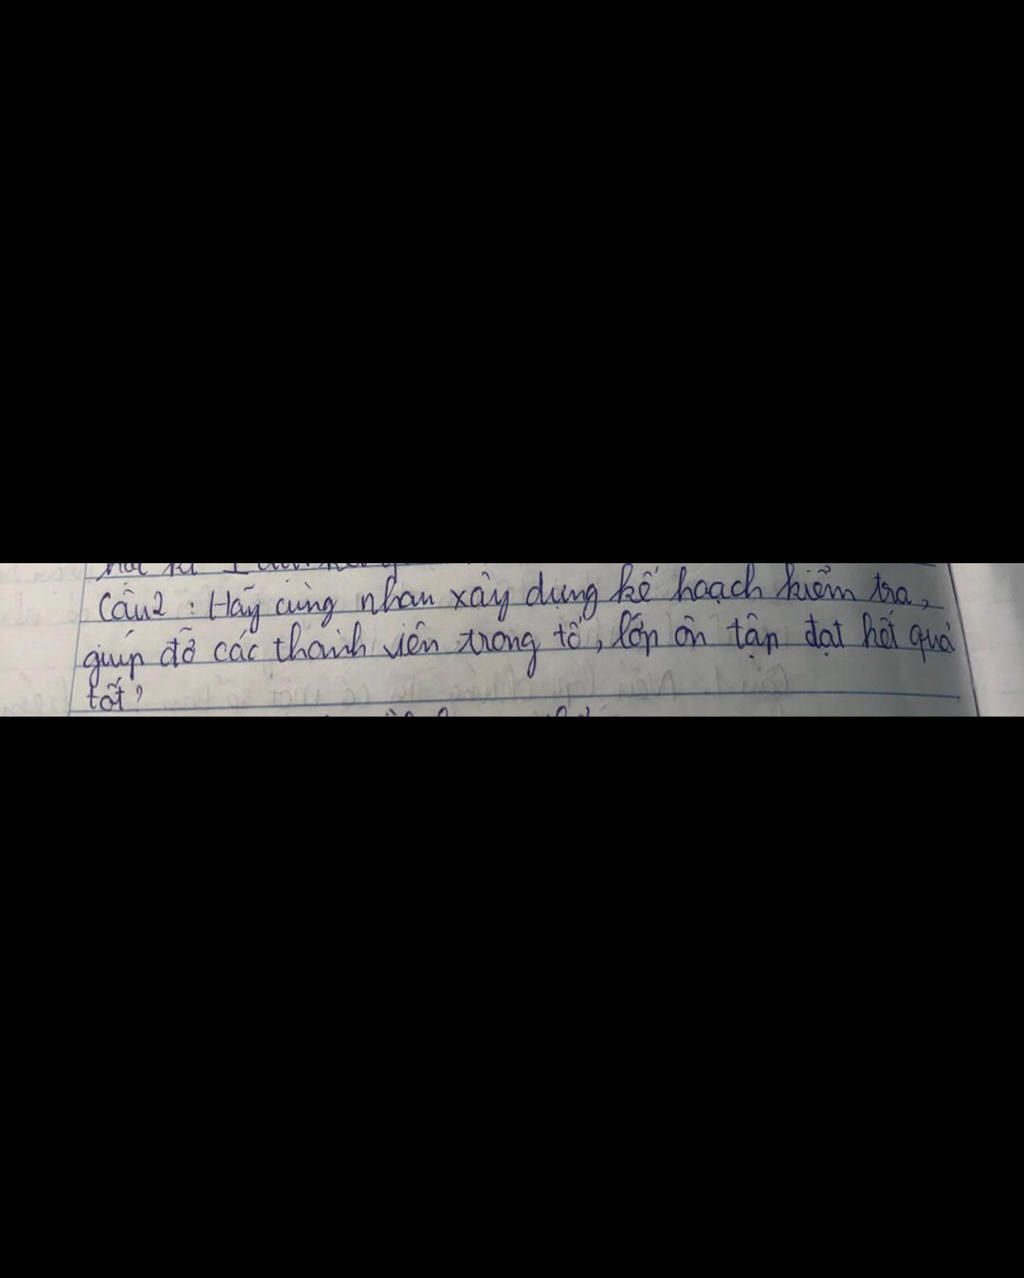 Câu2 : Hãy cùng nhau xây dựng kế hoạch kiểm tra,
giúp đỡ các thành viên trong tổ, lớp ôn tập đạt kết quả
tốt?